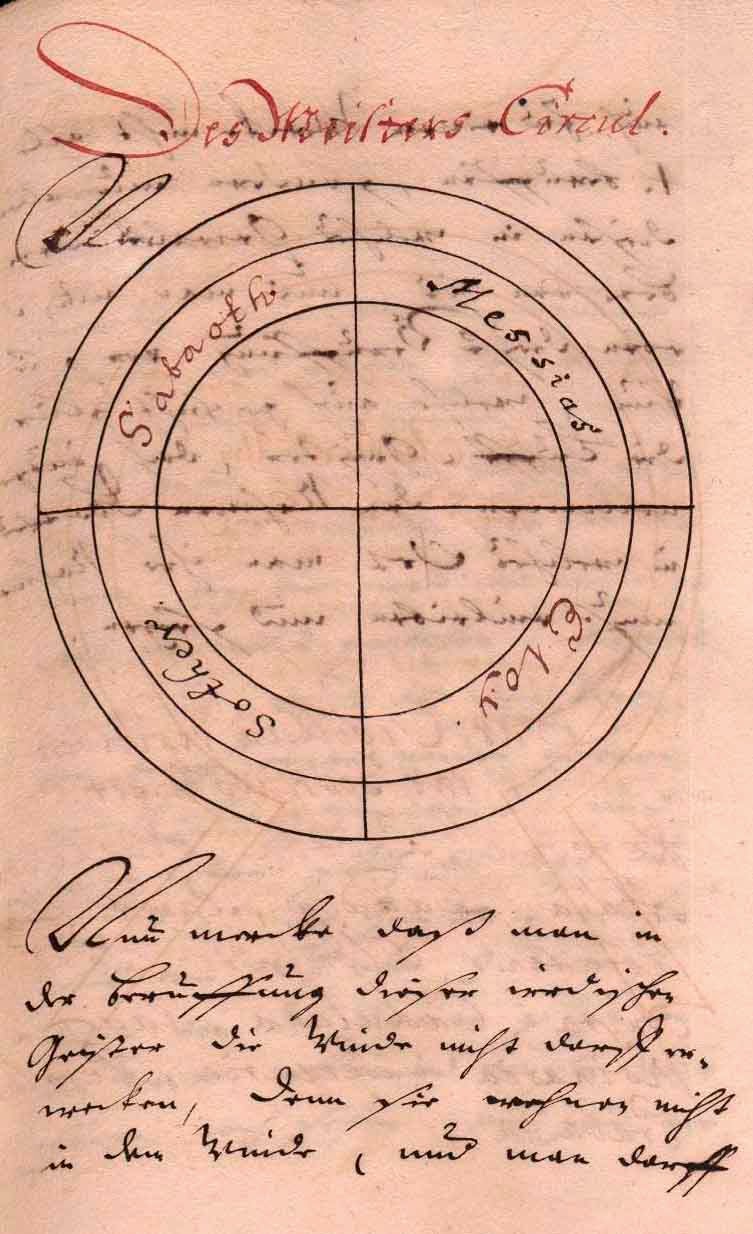 Des Meisters Circul.
N
Sabaoth
Messias
Eloy.
Sother.
Nun mercke daß man in
der beruffung dieser irdischen
Geister die Winde nicht darff er-
wecken, denn sie wohnen nicht
in dem Winde, und man darff